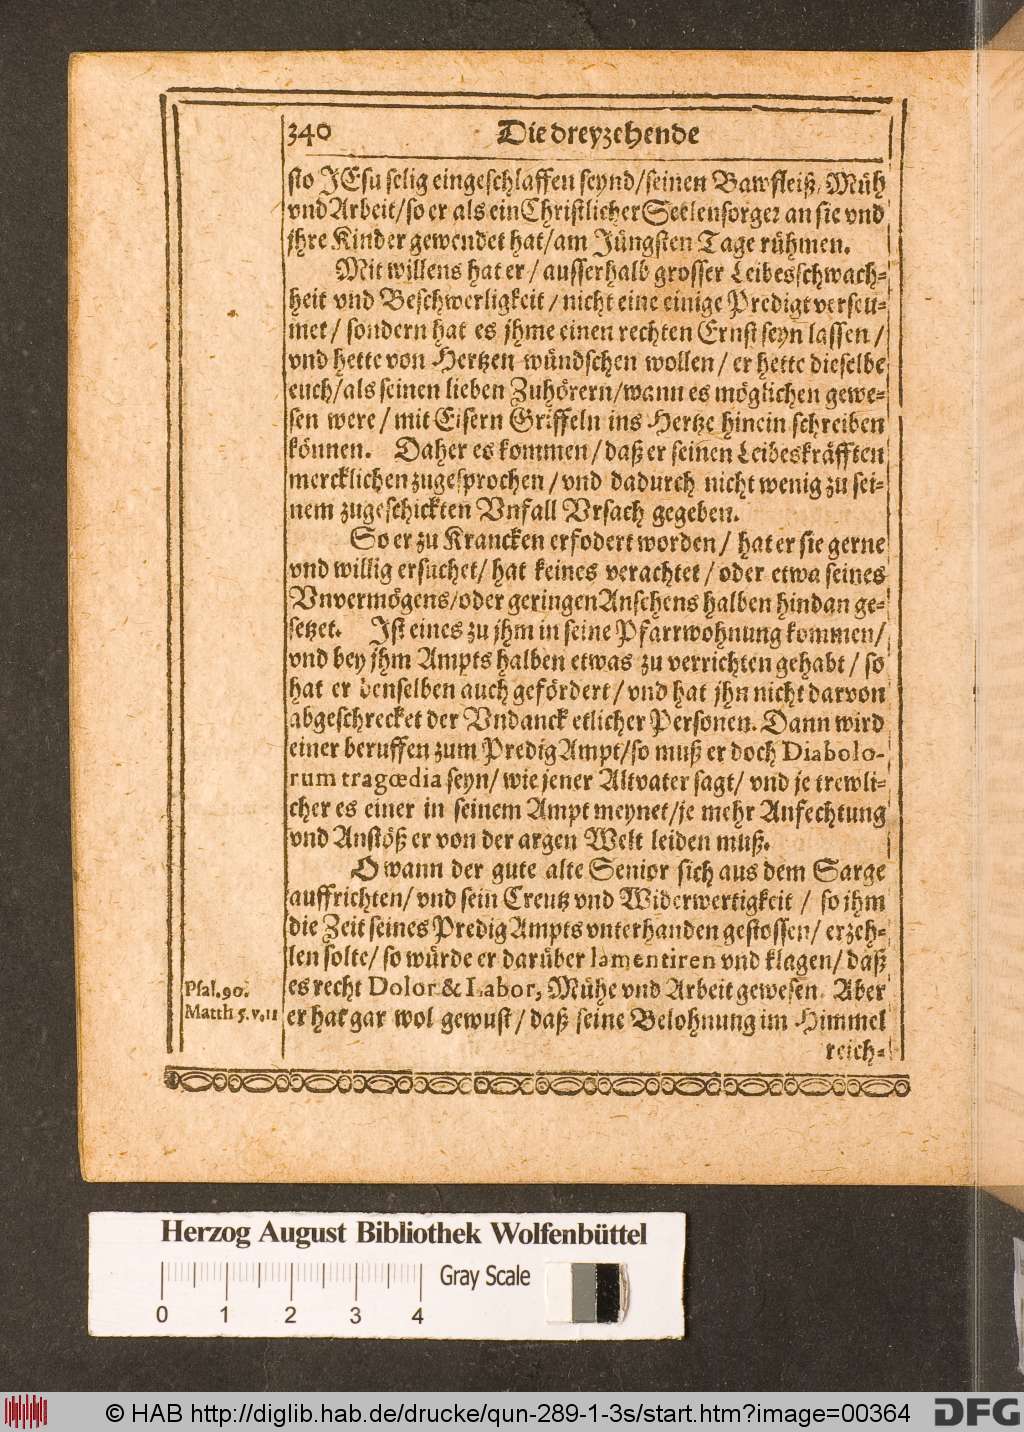 340 Die dreyzehende
sto JEsu selig eingeschlaffen seynd/seinen Bawfleiß, Müh
vnd Arbeit/so er als ein Christlicher Seelensorger an sie vnd
jhre Kinder gewendet hat/am Jüngsten Tage rühmen.
Mit willens hat er / ausserhalb grosser Leibesschwach-
heit vnd Beschwerligkeit / nicht eine einige Predigt verseu-
met / sondern hat es jhme einen rechten Ernst seyn lassen /
vnd hette von Hertzen wündschen wollen / er hette dieselbe
euch/als seinen lieben Zuhörern/wann es möglichen gewe-
sen were / mit Eisern Griffeln ins Hertze hinein schreiben
können. Daher es kommen / daß er seinen Leibeskräfften
mercklichen zugesprochen / vnd dadurch nicht wenig zu sei-
nem zugeschickten Vnfall Vrsach gegeben.
So er zu Krancken erfodert worden / hat er sie gerne
vnd willig ersuchet/ hat keines verachtet / oder etwa seines
Vnvermögens/oder geringen Ansehens halben hindan ge-
setzet. Ist eines zu jhm in seine Pfarrwohnung kommen/
vnd bey jhm Ampts halben etwas zu verrichten gehabt / so
hat er denselben auch gefördert / vnd hat jhn nicht darvon
abgeschrecket der Vndanck etlicher Personen. Dann wird
einer beruffen zum Predig Ampt/so muß er doch Diabolo-
rum tragœdia seyn/ wie jener Altvater sagt/ vnd je trewli-
cher es einer in seinem Ampt meynet/je mehr Anfechtung
vnd Anstöß er von der argen Welt leiden muß.
O wann der gute alte Senior sich aus dem Sarge
auffrichten/ vnd sein Creutz vnd Widerwertigkeit / so ihm
die Zeit seines Predig Ampts vnterhanden gestossen/ erzeh-
len solte/ so würde er darüber lamentiren vnd klagen/ daß
Psal. 90.
es recht Dolor & Labor, Mühe vnd Arbeit gewesen. Aber
Matth 5. v. 11
er hat gar wol gewust / daß seine Belohnung im Himmel
reich-
Herzog August Bibliothek Wolfenbüttel
Gray Scale
0 1 2 3 4
© HAB http://diglib.hab.de/drucke/qun-289-1-3s/start.htm?image=00364
DFG